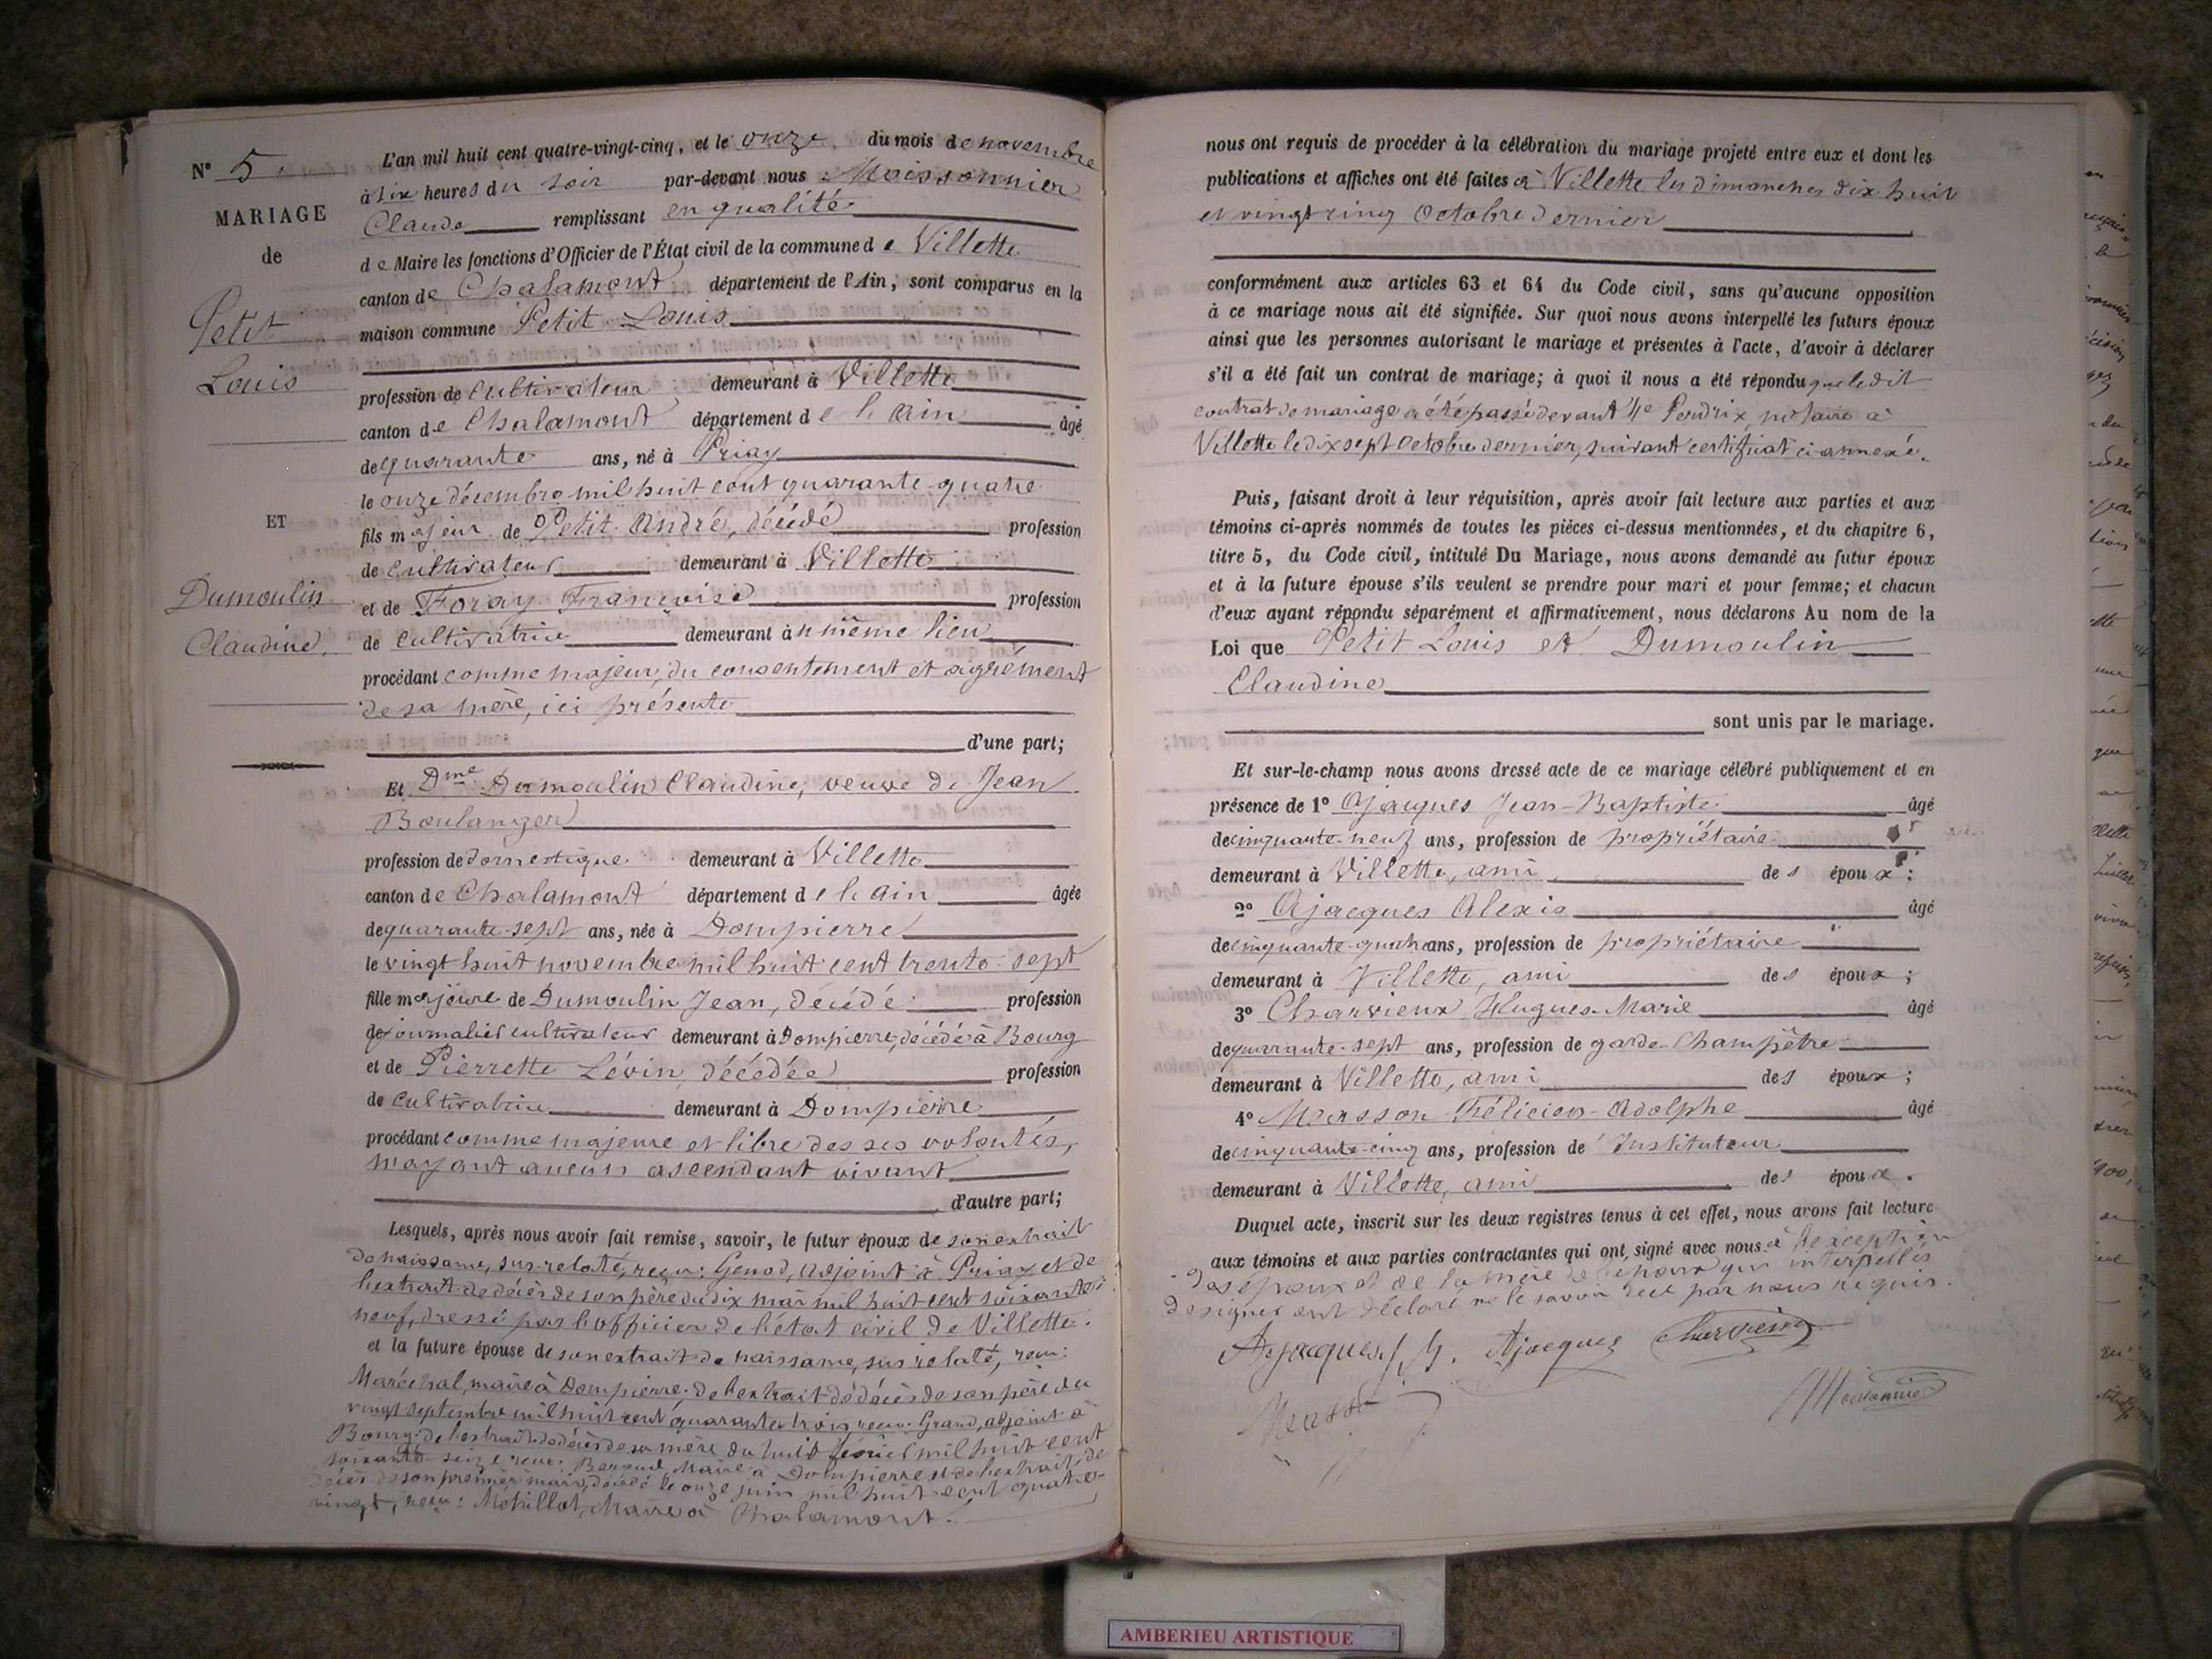 N° 5.
MARIAGE
de
Petit
Louis
ET
Dumoulin
Claudine.
L'an mil huit cent quatre-vingt-cinq, et le onze du mois de novembre
à six heures du soir par-devant nous Moissonnier
Claude remplissant en qualité
de Maire les fonctions d'Officier de l'État civil de la commune de Villette
canton de Chalamont département de l'Ain; sont comparus en la
maison commune Petit Louis
profession de cultivateur demeurant à Villette
canton de Chalamont département de l'Ain âgé
de quarante ans, né à Priay
le onze décembre mil huit cent quarante-quatre
fils majeur de Petit André, décédé profession
de cultivateur demeurant à Villette
et de Foray Françoise profession
de cultivatrice demeurant à même lieu
procédant comme majeur, du consentement et agrément
de sa mère, ici présente
d'une part;
Et Dme Dumoulin Claudine, veuve de Jean
Boulanger
profession de domestique demeurant à Villette
canton de Chalamont département de l'Ain âgée
de quarante-sept ans, née à Dompierre
le vingt huit novembre mil huit cent trente-sept
fille majeure de Dumoulin Jean, décédé profession
de journalier cultivateur demeurant à Dompierre, décédé à Bourg
et de Pierrette Lévin décédée profession
de cultivatrice demeurant à Dompierre
procédant comme majeure et libre des ses volontés,
n'ayant aucun ascendant vivant
d'autre part;
Lesquels, après nous avoir fait remise, savoir, le futur époux de son extrait
de naissance, sus-relaté, reçu: Genod, adjoint à Priay et de
l'extrait de décès de son père du dix mai mil huit cent soixante
neuf, dressé par l'officier de l'état civil de Villette.
et la future épouse de son extrait de naissance, sus relaté, reçu:
Maréchal, maire à Dompierre. de l'extrait de décès de son père du
vingt septembre mil huit cent quarante trois reçu: Grand, adjoint à
Bourg. de l'extrait de décès de sa mère du huit mil huit cent
soixante-seize reçu: Maire à Dompierre et de l'extrait de
décès de son premier mari, décédé le onze juin mil huit cent quatre-
vingt, reçu: Maire à Chalamont.
nous ont requis de procéder à la célébration du mariage projeté entre eux et dont les
publications et affiches ont été faites à Villette les dimanches dix huit
et vingt cinq Octobre dernier
conformément aux articles 63 et 64 du Code civil, sans qu'aucune opposition
à ce mariage nous ait été signifiée. Sur quoi nous avons interpellé les futurs époux
ainsi que les personnes autorisant le mariage et présentes à l'acte, d'avoir à déclarer
s'il a été fait un contrat de mariage; à quoi il nous a été répondu que ledit
contrat de mariage a été passé devant Me notaire à
Villette le dix sept Octobre dernier, suivant certificat ci-annexé.
Puis, faisant droit à leur réquisition, après avoir fait lecture aux parties et aux
témoins ci-après nommés de toutes les pièces ci-dessus mentionnées, et du chapitre 6,
titre 5, du Code civil, intitulé Du Mariage, nous avons demandé au futur époux
et à la future épouse s'ils veulent se prendre pour mari et pour femme; et chacun
d'eux ayant répondu séparément et affirmativement, nous déclarons Au nom de la
Loi que Petit Louis et Dumoulin
Claudine
sont unis par le mariage.
Et sur-le-champ nous avons dressé acte de ce mariage célébré publiquement et en
présence de 1° Ajacques Jean-Baptiste âgé
de cinquante-neuf ans, profession de propriétaire
demeurant à Villette, ami des époux;
2° Ajacques Alexis âgé
de cinquante-quatre ans, profession de propriétaire
demeurant à Villette, ami des époux;
3° Charvieux Hugues-Marie âgé
de quarante-sept ans, profession de garde-Champêtre
demeurant à Villette, ami des époux;
4° Masson Félicien-Adolphe âgé
de cinquante-cinq ans, profession de Instituteur
demeurant à Villette, ami des époux.
Duquel acte, inscrit sur les deux registres tenus à cet effet, nous avons fait lecture
aux témoins et aux parties contractantes qui ont signé avec nous à l'exception
des époux et de la mère de l'époux qui interpellés
de signer ont déclaré ne le savoir de ce par nous requis.
Ajacques Ajacques Charvieux
Moissonnier
AMBERIEU ARTISTIQUE